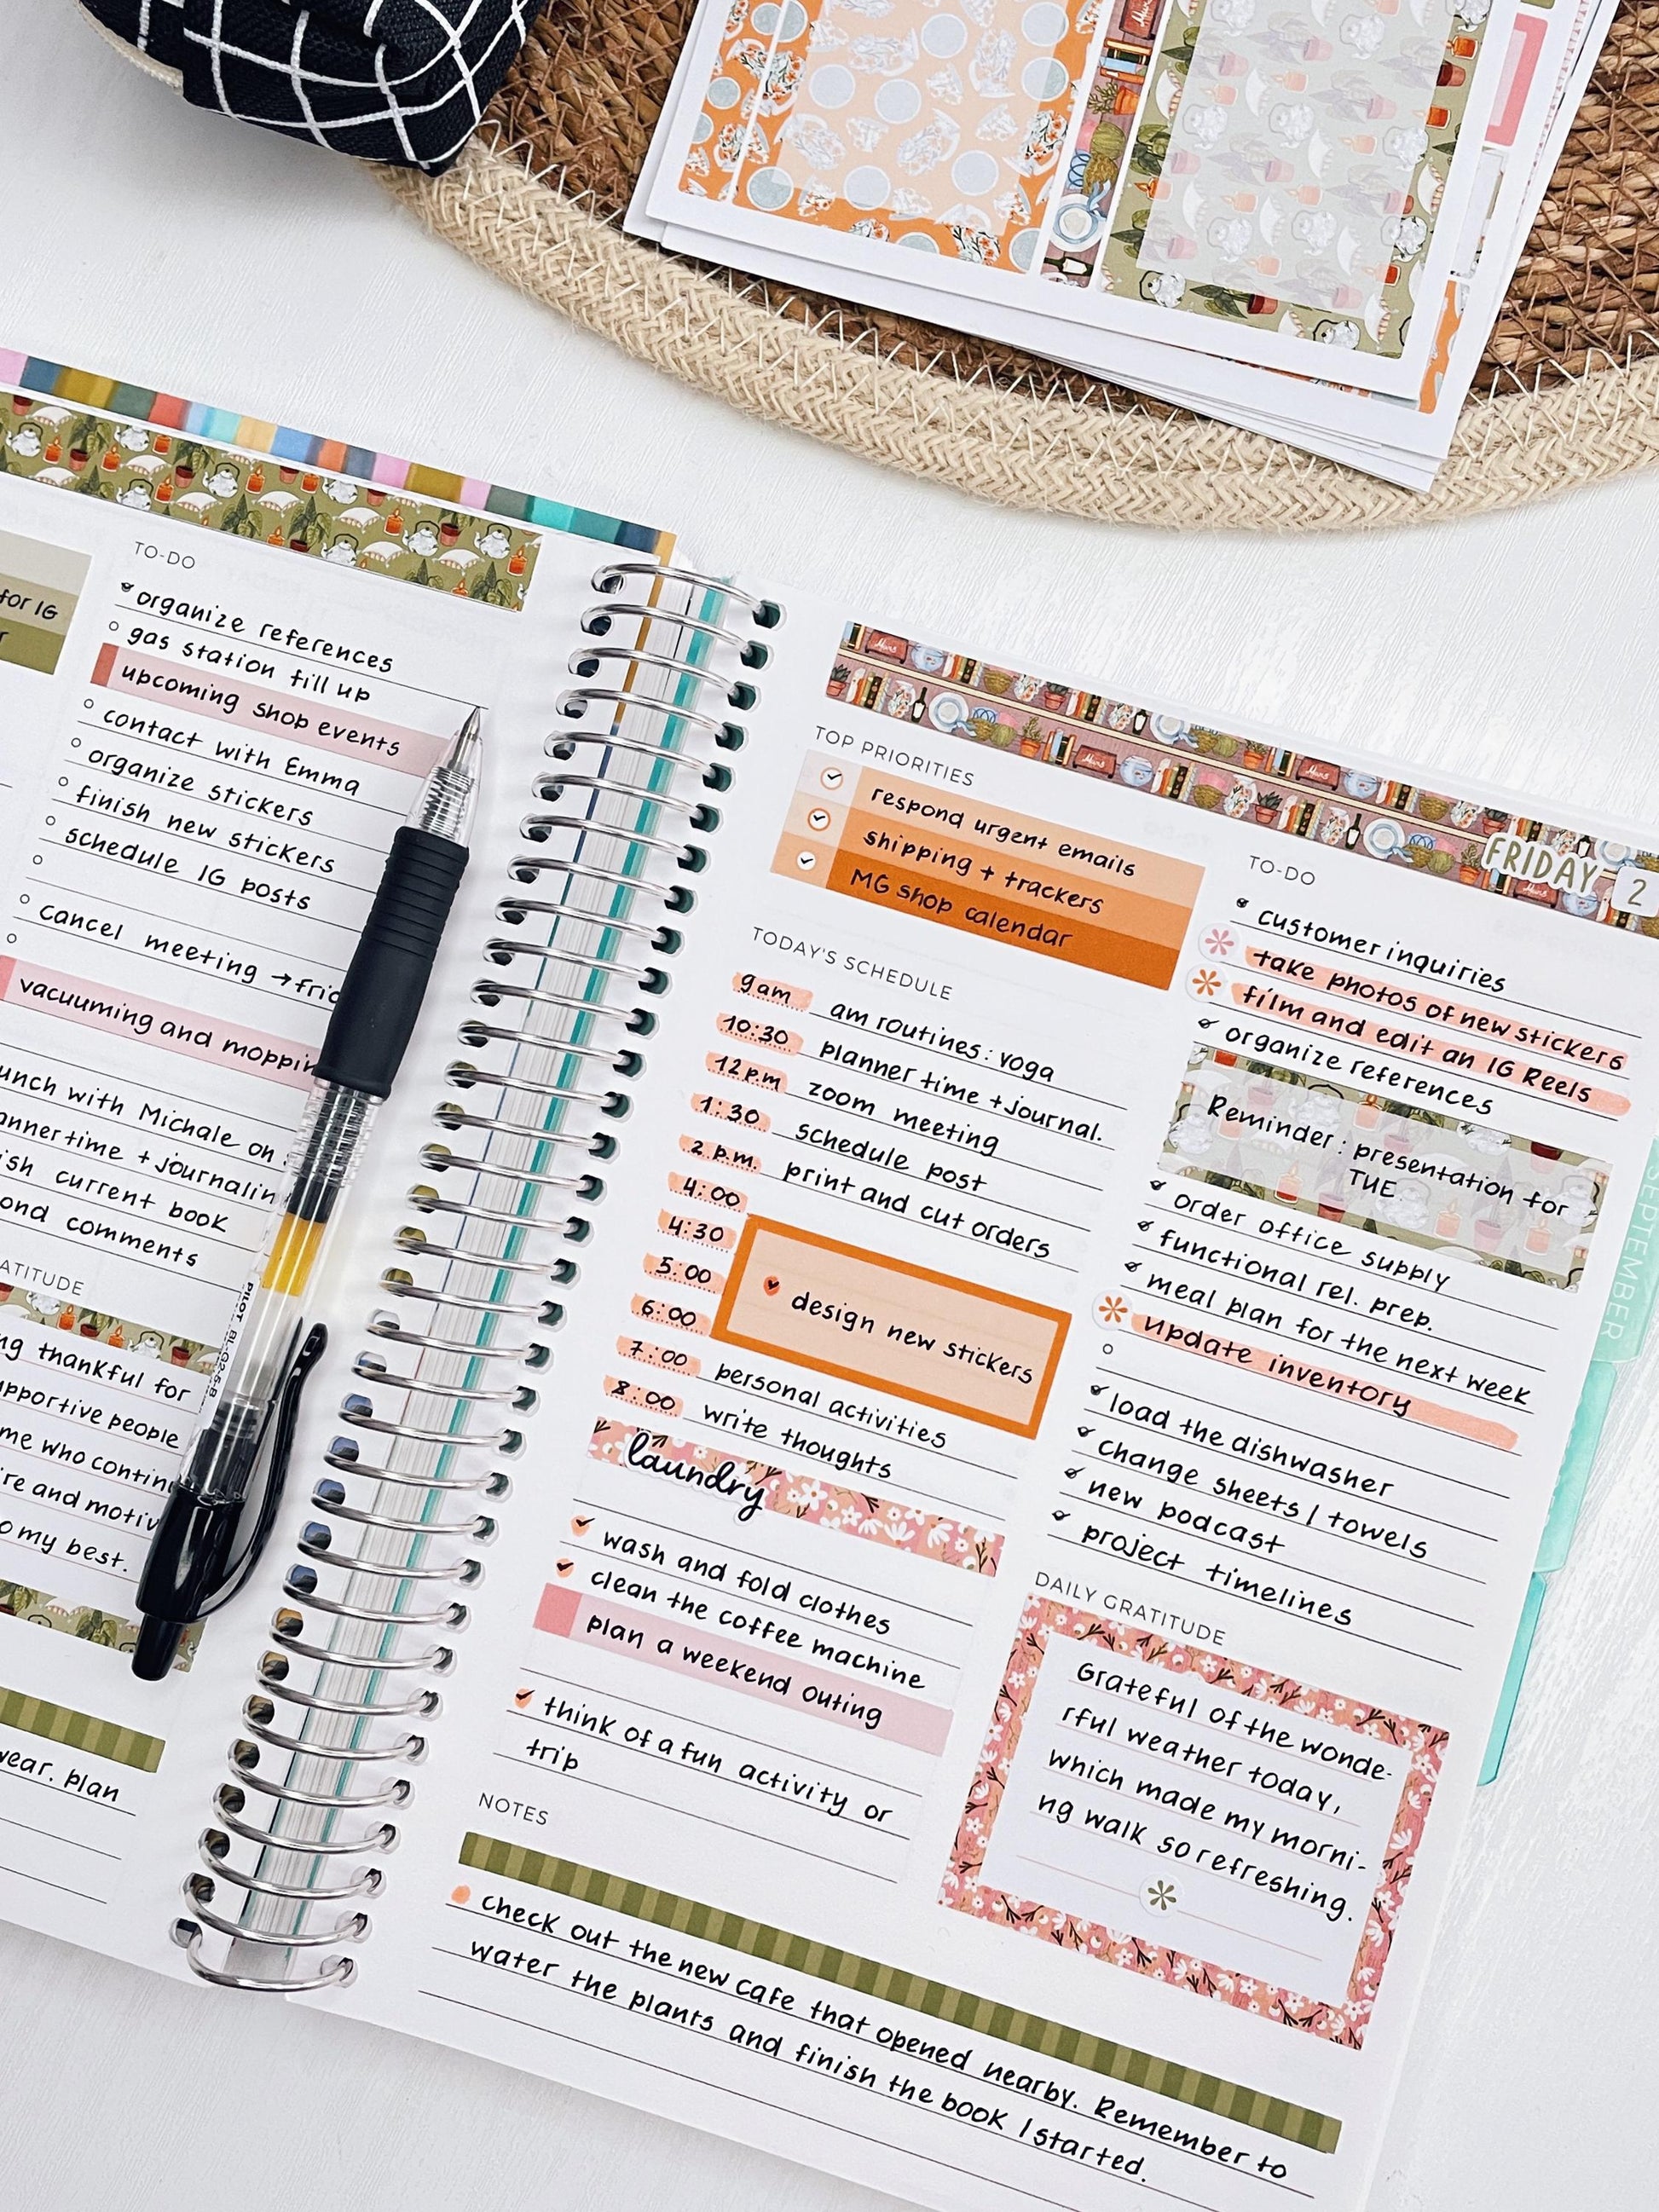 for IG
TO-DO
organize references
gas station fill up
upcoming shop events
contact with Emma
organize stickers
finish new stickers
schedule IG posts
cancel meeting → fri
vacuuming and moppin
unch with Michale on
anner time + journalin
ish current book
ond comments
ATITUDE
ng thankful for
upportive people
me who contin
re and motiv
o my best.
wear. plan
PILOT BL-G2-5-B
TOP PRIORITIES
respond urgent emails
shipping + trackers
MG shop calendar
TODAY'S SCHEDULE
9am am routines: yoga
10:30 planner time + journal.
12p.m zoom meeting
1:30 schedule post
2 p.m. print and cut orders
4:00
4:30
5:00 design new stickers
6:00
7:00 personal activities
8:00 write thoughts
laundry
wash and fold clothes
clean the coffee machine
plan a weekend outing
think of a fun activity or
trip
FRIDAY 2
TO-DO
customer inquiries
take photos of new stickers
film and edit an IG Reels
organize references
Reminder: presentation for
TUE
order office supply
functional rel. prep.
meal plan for the next week
update inventory
load the dishwasher
change sheets / towels
new podcast
project timelines
DAILY GRATITUDE
Grateful of the wonde-
rful weather today,
which made my morni-
ng walk so refreshing.
NOTES
check out the new cafe that opened nearby. Remember to
water the plants and finish the book I started.
SEPTEMBER